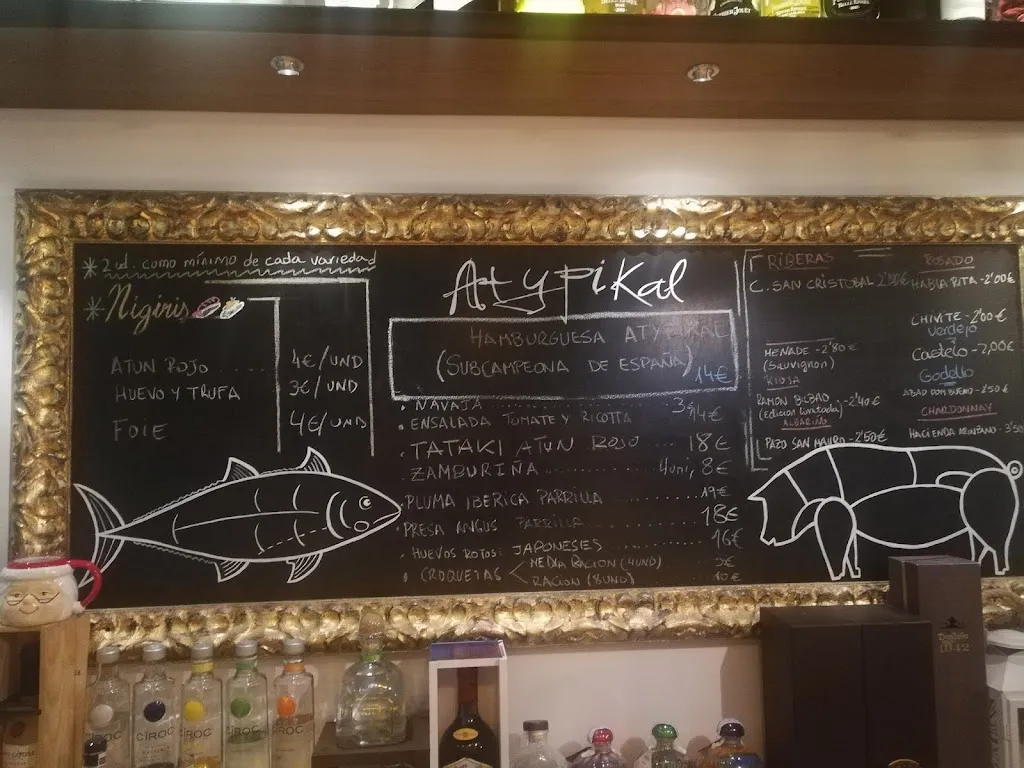 * 2 ud. como mínimo de cada variedad
* Nigiris
ATUN ROJO ..... 4€/UND
HUEVO Y TRUFA 3€/UND
FOIE 4€/UND
Atypikal
HAMBURGUESA ATYPIKAL
(SUBCAMPEONA DE ESPAÑA) 14€
• NAVAJA
• ENSALADA TOMATE Y RICOTTA 14€
• TATAKI ATUN ROJO ... 18€
• ZAMBURIÑA ..... 4uni, 8€
• PLUMA IBERICA PARRILLA 19€
PRESA ANGUS PARRILLA 18€
• HUEVOS ROTOS: JAPONESES ..... 16€
• CROQUETAS < MEDIA RACION (4UND) 5€
RACION (8UND) 10€
RIBERAS
C. SAN CRISTOBAL
MENADE -2'80€
(Sauvignon)
RIOJA
RAMON BILBAO -2'40€
(Edicion limitada)
ALBARIÑO
PAZO SAN MAURO -2'50€
ROSADO
HABLA RITA -2'00€
CHIVITE -2'00€
Verdejo
Castelo -2,00€
Godello
ABAD DOM BUENO -2'50€
CHARDONNAY
HACIENDA ARINZANO -3'50
CÎROC
CÎROC
CÎROC
CÎROC
CÎROC